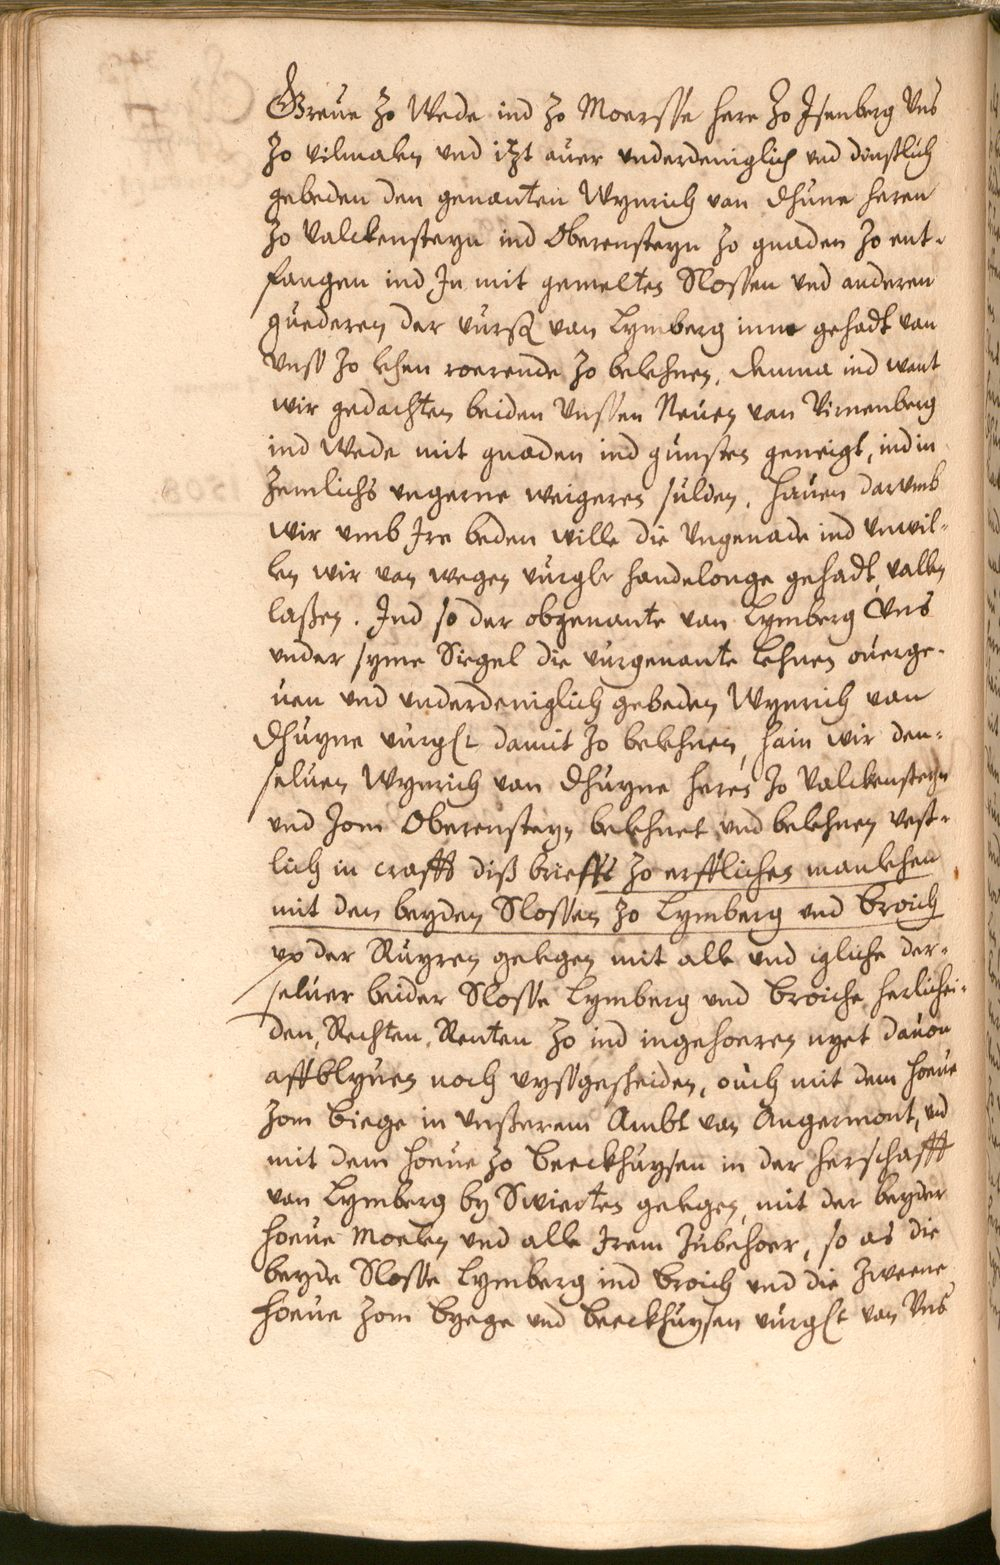 Greue zo Wede ind zo Moersse here zo Isenberg Vns
zo vilmalen vnd itzt auer vnderdeniglich vnd dinstlich
gebeden den genanten Wynrich van Dhune heren
zo Valckensteyn ind Oberensteyn zo gnaden zo ent-
fangen ind In mit gemelten Slossen vnd anderen
guederen der vurß van Lymberg inne gehadt van
vnss zo lehen roerende zo belehnen, demna ind want
wir gedachten beiden vnssen Neuen van Virnenberg
ind Wede mit gnaden ind gunsten geneigt, ind in
zemlichs vngerne weigeren sulden, hauen darumb
wir vmb Ire beden wille die vngenade ind vnwil-
len wir van wegen vurglr handelonge gehadt, vallen
laßen. Ind so der obgenante van Lymberg Vns
vnder syme Siegel die vurgenante lehnen ouerge-
uen vnd vnderdeniglich gebeden Wynrich van
Dhuyne vurglt damit zo belehnen, hain wir den-
seluen Wynrich van Dhuyne heren zo Valckensteyn
vnd zom Oberensteyn belehnet vnd belehnen vest-
lich in crafft diß brieffs zo erfflichen manlehen
mit den beyden Slossen zo Lymberg vnd Broich
vp der Ruyren gelegen mit alle vnd igliche der-
seluer beider Slosse Lymberg vnd Broiche herlichei-
den, Rechten, Renten zo ind ingehoeren nyet dauon
affblyuen noch vyssgescheiden, ouch mit dem houe
zom Biege in vnßerem Ambt van Angermont, vnd
mit dem houe zo Beeckhuysen in der herschafft
van Lymberg by Swierten gelegen, mit der beyder
hoeue Moelen vnd alle Irem zubehoer, so as die
beyde Slosse Lymberg ind Broich vnd die zweene
hoeue zom Byege vnd Beeckhuysen vurglt van Vns